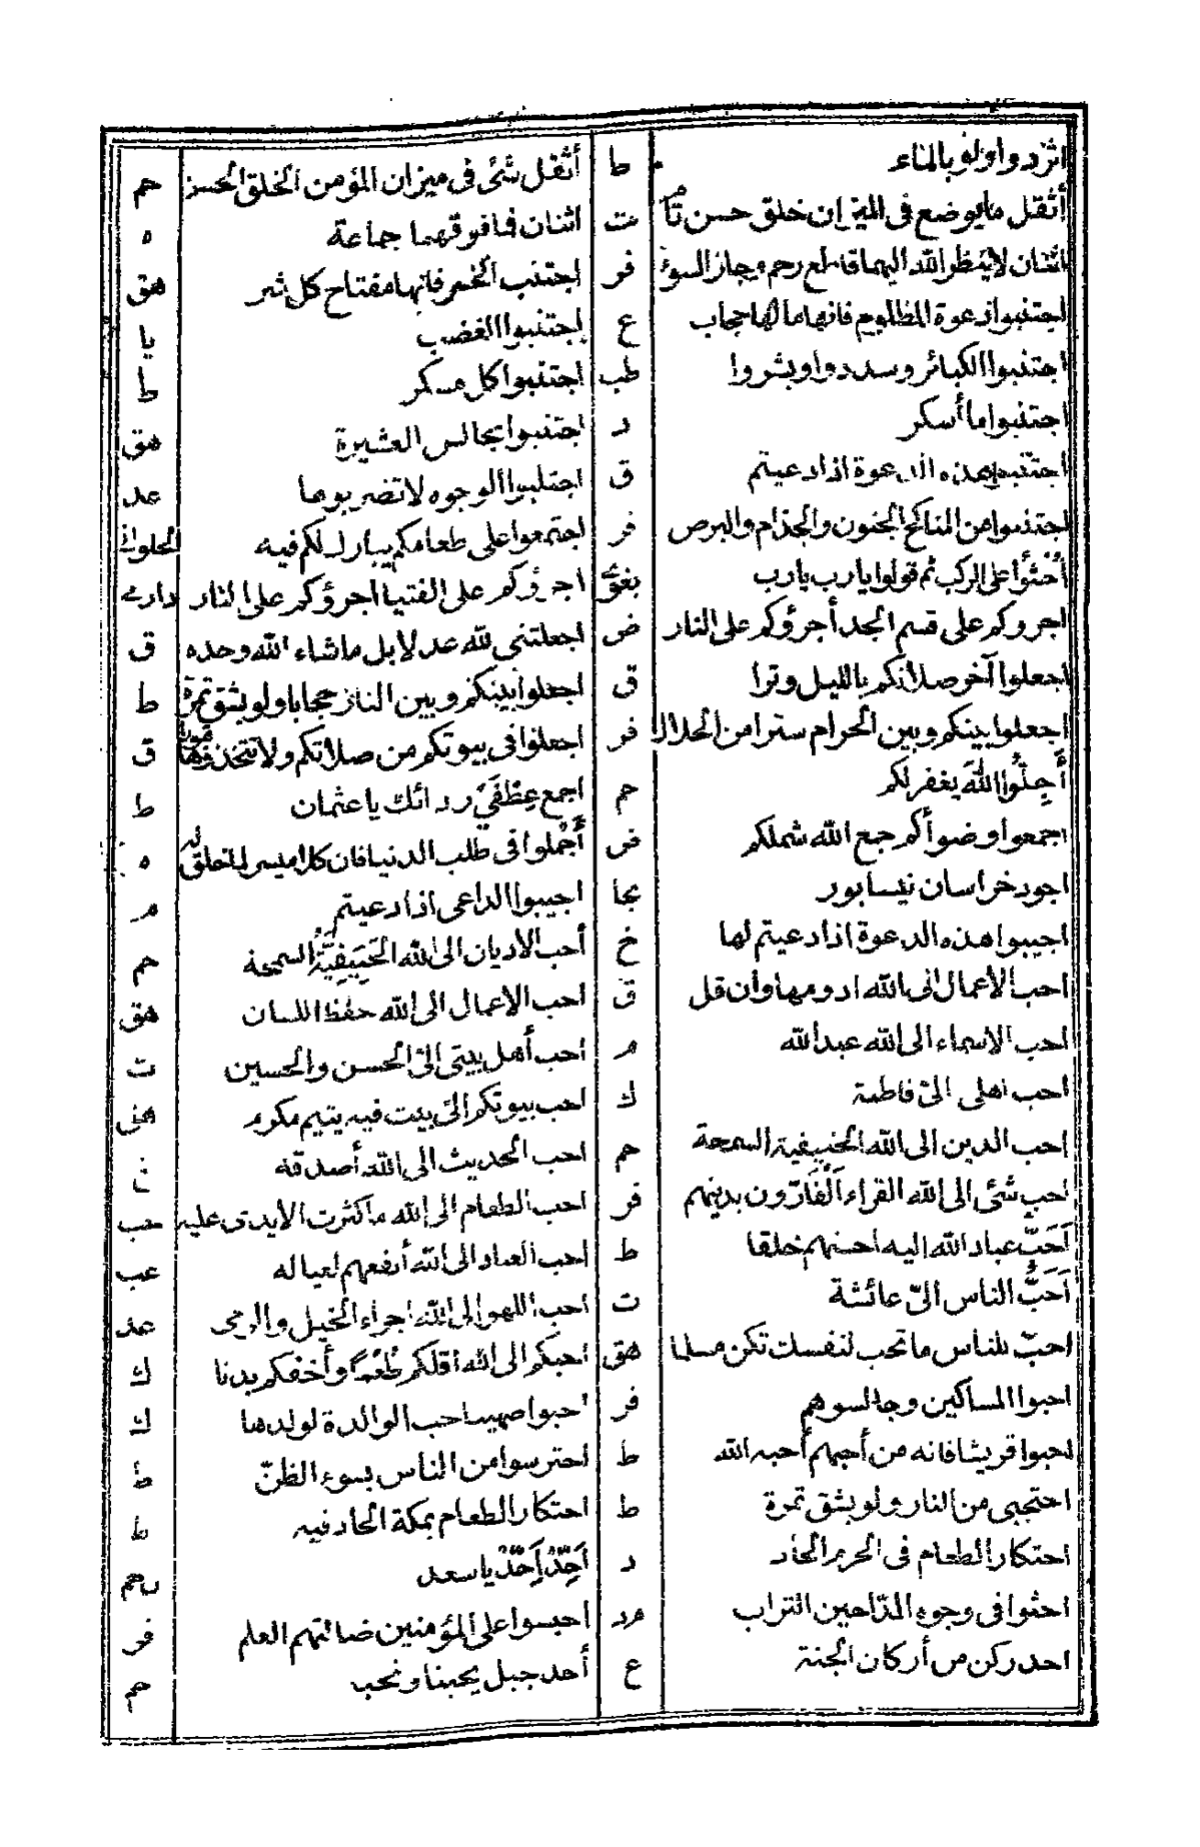 اثردوا ولو بالماء ط أثقل شئ في ميزان المؤمن الخلق الحسن حم
أثقل ما يوضع في الميزان خلق حسن ت اثنان فما فوقهما جماعة ه
اثنان لا ينظر الله اليهما قاطع رحم وجار السوء فر اجتنب الخمر فانها مفتاح كل شر هق
اجتنبوا دعوة المظلوم فانها ما لها حجاب ع اجتنبوا الغضب يا
اجتنبوا الكبائر وسددوا وبشروا طب اجتنبوا كل مسكر ط
اجتنبوا ما أسكر د اجتنبوا مجالس العشيرة هق
هذه الدعوة اذا دعيتم ق اجتنبوا الوجوه لا تضربوها عد
اجتنبوا من النكاح الجنون والجذام والبرص فر اجتمعوا على طعامكم يبارك لكم فيه
على الركب ثم قولوا يا رب يا رب اجرؤكم على الفتيا اجرؤكم على النار دارمي
اجرؤكم على قسم الجد أجرؤكم على النار ض اجعلتني لله عدلا بل ما شاء الله وحده ق
اجعلوا آخر صلاتكم بالليل وترا ق اجعلوا بينكم وبين النار حجابا ولو بشق تمرة ط
اجعلوا بينكم وبين الحرام سترا من الحلال فر اجعلوا في بيوتكم من صلاتكم ولا تتخذوها قبورا ق
أَجِلُّوا اللهَ يغفر لكم حم اجمع عِطْفَيْ ردائك يا عثمان ط
اجمعوا وضوأكم جمع الله شملكم ض أَجْمِلوا في طلب الدنيا فان كلا ميسر لما خلق له ه
اجود خراسان نيسابور نجا اجيبوا الداعي اذا دعيتم م
اجيبوا هذه الدعوة اذا دعيتم لها خ أحب الاديان الى الله الحَنِيفِيَّةُ السمحة حم
احب الأعمال الى الله ادومها وان قل ق احب الاعمال الى الله حفظ اللسان هق
احب الاسماء الى الله عبد الله م احب أهل بيتي الىّ الحسن والحسين ت
احب اهلي الىّ فاطمة ك احب بيوتكم الىّ بيت فيه يتيم مكرم هق
احب الدين الى الله الحنيفية السمحة حم احب الحديث الى الله أصدقه خ
احب شئ الى الله القراء الفَارّون بدينهم فر احب الطعام الى الله ما كثرت الايدي عليه حب
أَحَبُّ عباد الله اليه احسنهم خلقا ط أحب العباد الى الله أنفعهم لعياله عب
أَحَبُّ الناس الىّ عائشة ت احب اللهو الى الله اجراء الخيل والرمي عد
احبّ للناس ما تحب لنفسك تكن مسلما هق احبكم الى الله اقلكم طُعْمًا وأخفكم بدنا ك
احبوا المساكين وجالسوهم فر احبوا صهيبا حب الوالدة لولدها ك
احبوا قريشا فانه من أحبهم أحبه الله ط احترسوا من الناس بسوء الظنّ ط
احتجبي من النار ولو بشق تمرة ط احتكار الطعام بمكة الحاد فيه ط
احتكار الطعام في الحرم الحاد د أَحِّدْ أَحِّدْ يا سعد حم
احثوا في وجوه المدّاحين التراب مرد احبسوا على المؤمنين ضالتهم العلم فر
احد ركن من أركان الجنة ع أحد جبل يحبنا ونحبه حم